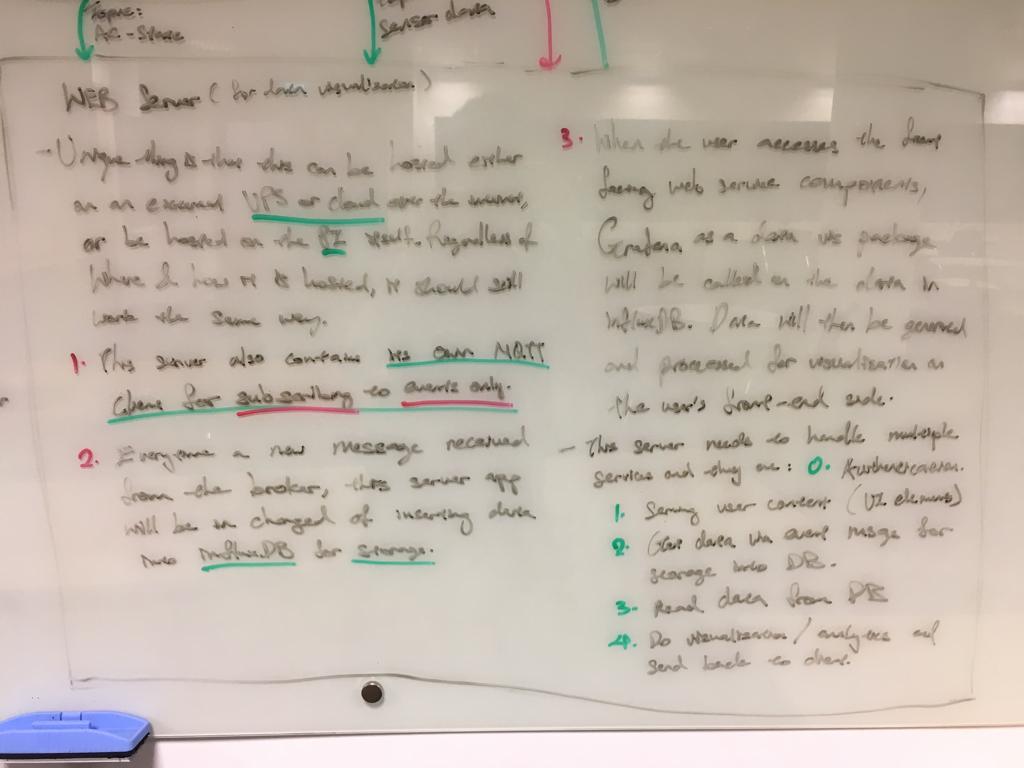 Topic:
AC-State
Sensor data
WEB Server (for data visualization)
- Unique thing is that this can be hosted either
on an external VPS or cloud over the internet,
or be hosted on the PI itself. Regardless of
where & how it is hosted, it should still
work the same way.
1. This server also contains its own MQTT
Client for subscribing to events only.
2. Everytime a new message received
from the broker, this server app
will be in charged of inserting data
into InfluxDB for storage.
3. When the user accesses the front
facing web service components,
Grafana as a data vis package
will be called on the data in
InfluxDB. Data will then be
and processed for visualization on
the user's front-end side.
- This server needs to handle multiple
services and they are: 0. Authentication.
1. Serving user content (UI elements)
2. Get data via event msgs for
storage into DB.
3. Read data from DB
4. Do visualization / analytics and
send back to client.